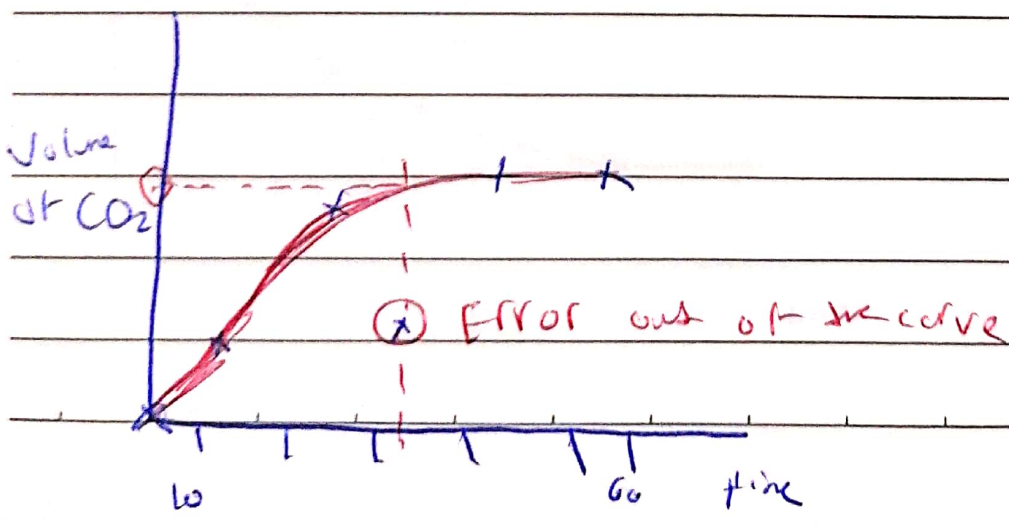 Volume
of CO₂
Error out of the curve
10
60
time